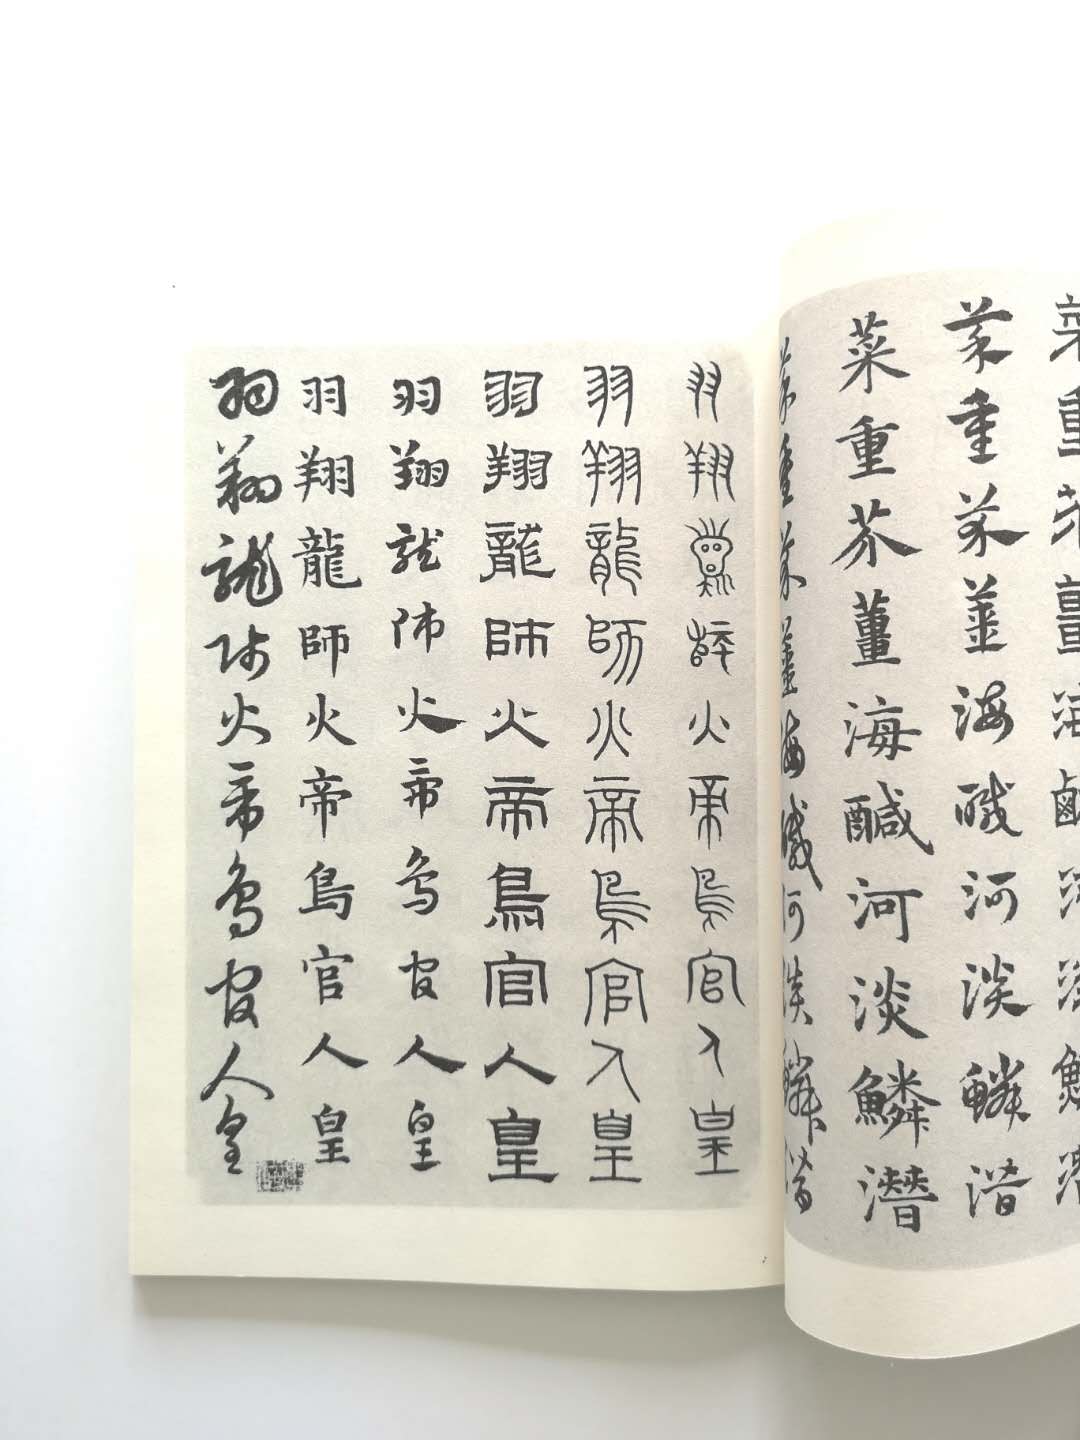 菜重芥薑海鹹河淡鱗潛
菜重芥薑海鹹河淡鱗潛
菜重芥薑海鹹河淡鱗潛
菜重芥薑海鹹河淡鱗潛
羽翔龍師火帝鳥官人皇
羽翔龍師火帝鳥官人皇
羽翔龍師火帝鳥官人皇
羽翔龍師火帝鳥官人皇
羽翔龍師火帝鳥官人皇
羽翔龍師火帝鳥官人皇